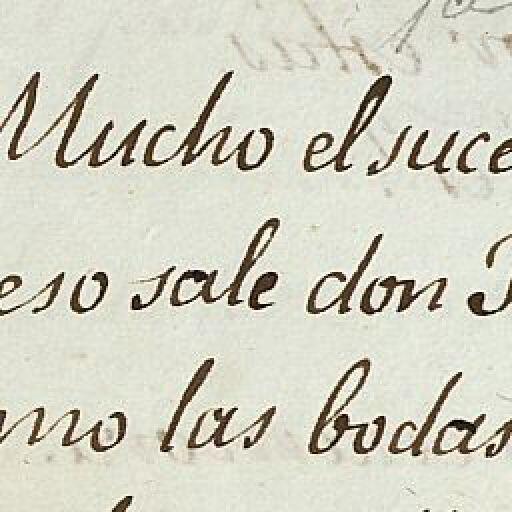 Mucho el suce
eso sale don
mo las bodas